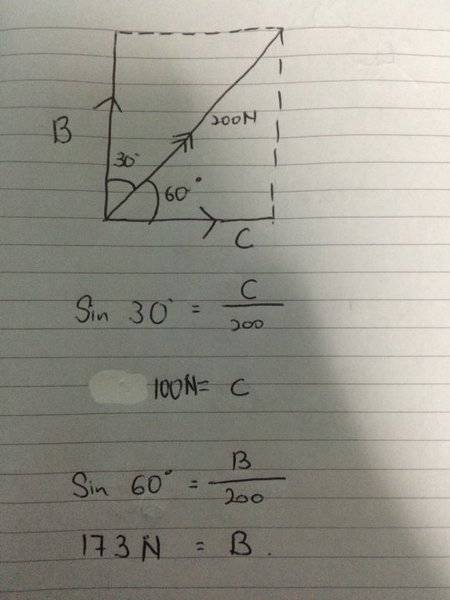 B
200N
30°
60°
C
Sin 30° = C/200
100N = C
Sin 60° = B/200
173 N = B.